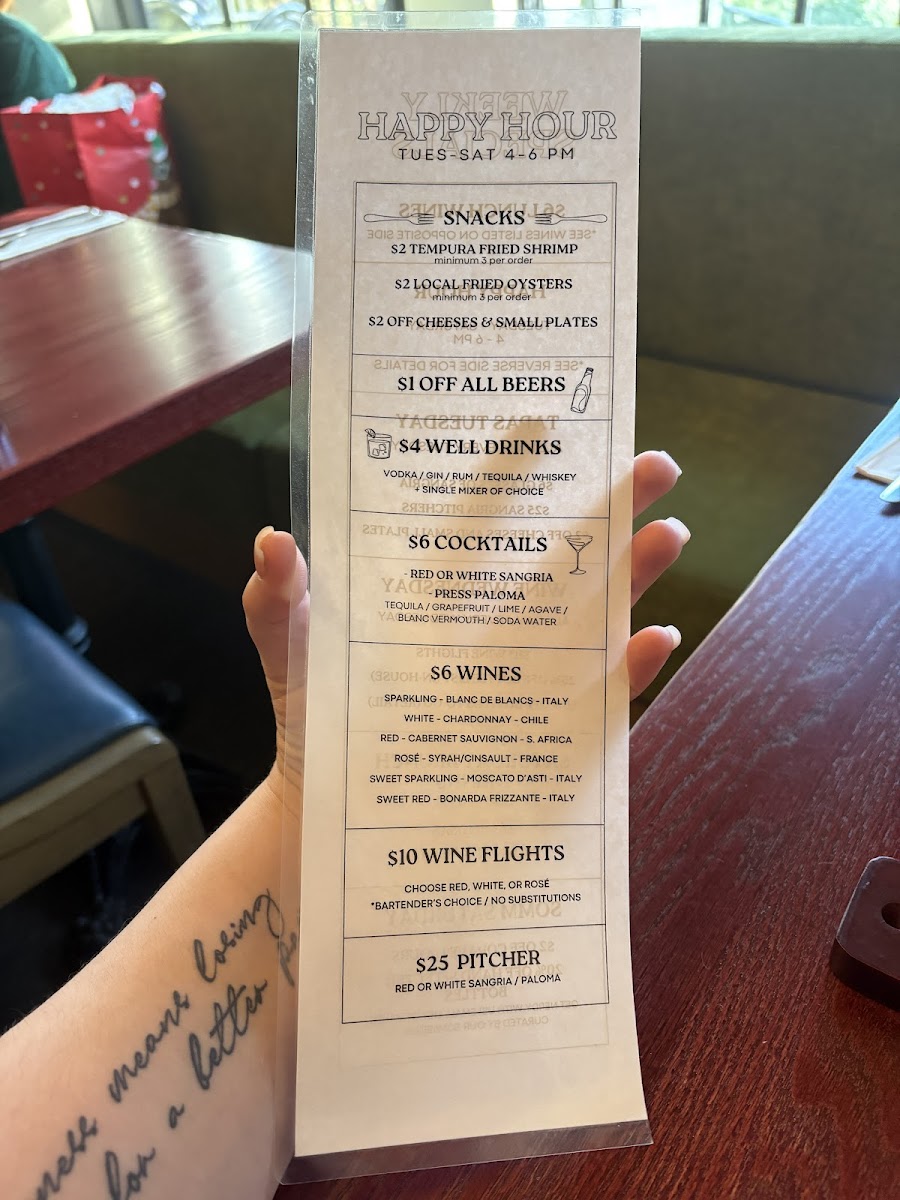 HAPPY HOUR
TUES-SAT 4-6 PM
SNACKS
$2 TEMPURA FRIED SHRIMP
minimum 3 per order
$2 LOCAL FRIED OYSTERS
minimum 3 per order
$2 OFF CHEESES & SMALL PLATES
$1 OFF ALL BEERS
$4 WELL DRINKS
VODKA / GIN / RUM / TEQUILA / WHISKEY
+ SINGLE MIXER OF CHOICE
$6 COCKTAILS
- RED OR WHITE SANGRIA
PRESS PALOMA
TEQUILA / GRAPEFRUIT / LIME / AGAVE /
BLANC VERMOUTH / SODA WATER
$6 WINES
SPARKLING - BLANC DE BLANCS - ITALY
WHITE - CHARDONNAY - CHILE
RED - CABERNET SAUVIGNON - S. AFRICA
ROSÉ - SYRAH/CINSAULT - FRANCE
SWEET SPARKLING - MOSCATO D'ASTI - ITALY
SWEET RED - BONARDA FRIZZANTE - ITALY
$10 WINE FLIGHTS
CHOOSE RED, WHITE, OR ROSÉ
*BARTENDER'S CHOICE / NO SUBSTITUTIONS
$25 PITCHER
RED OR WHITE SANGRIA / PALOMA
means losing
for a better